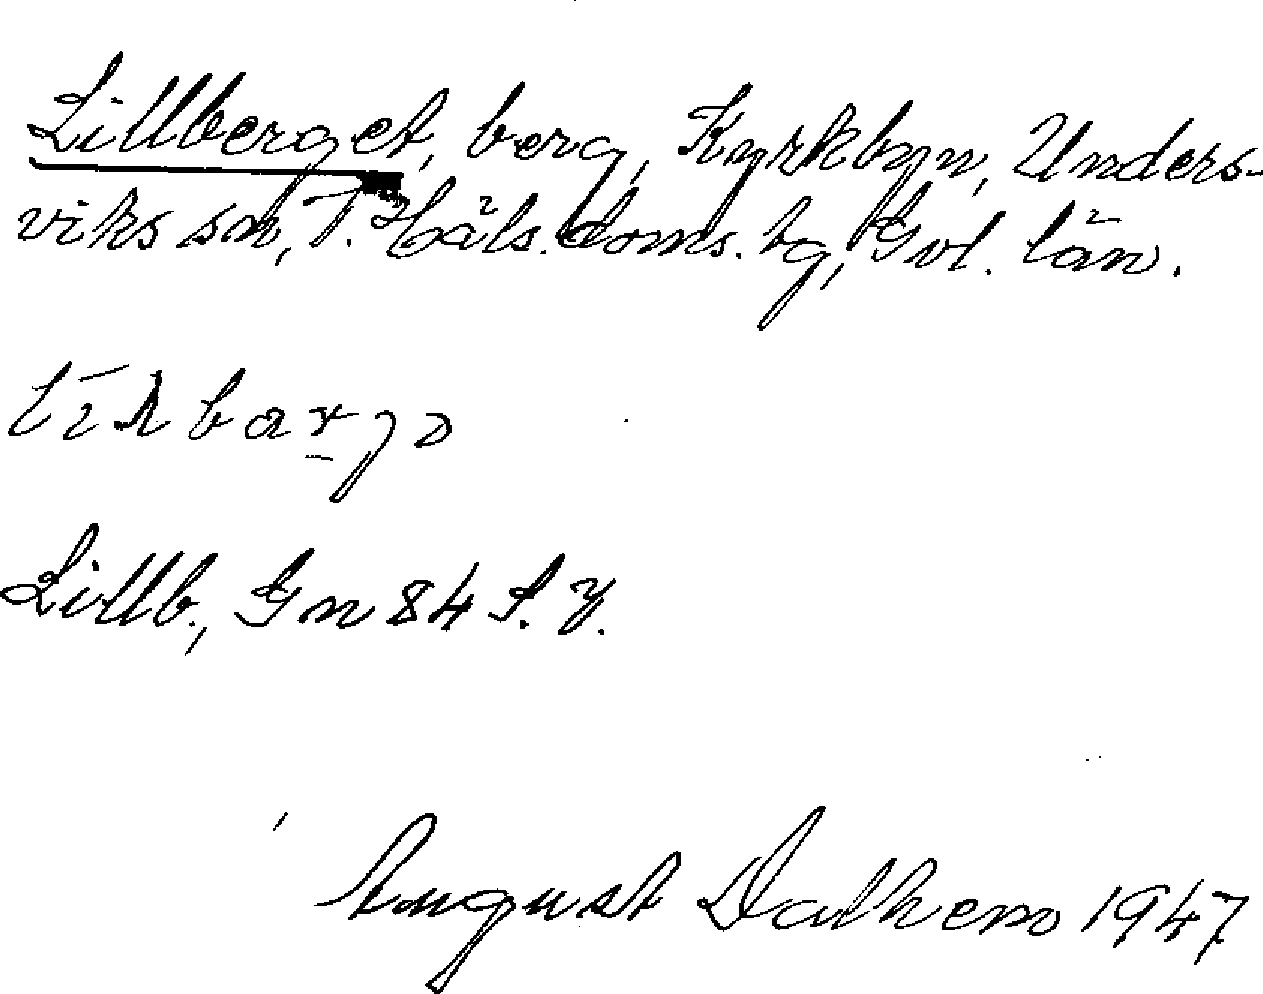 Lillberget, berg, Kyrkbyn, Unders-
viks sn, V. Häls. doms. hg, Gvl. län.
Lillb., Gn 84 S. Y.
August Dalhem 1947